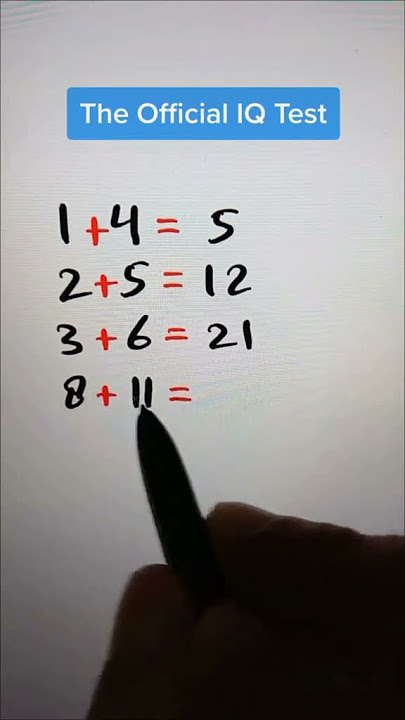 The Official IQ Test
1 + 4 = 5
2 + 5 = 12
3 + 6 = 21
8 + 11 =